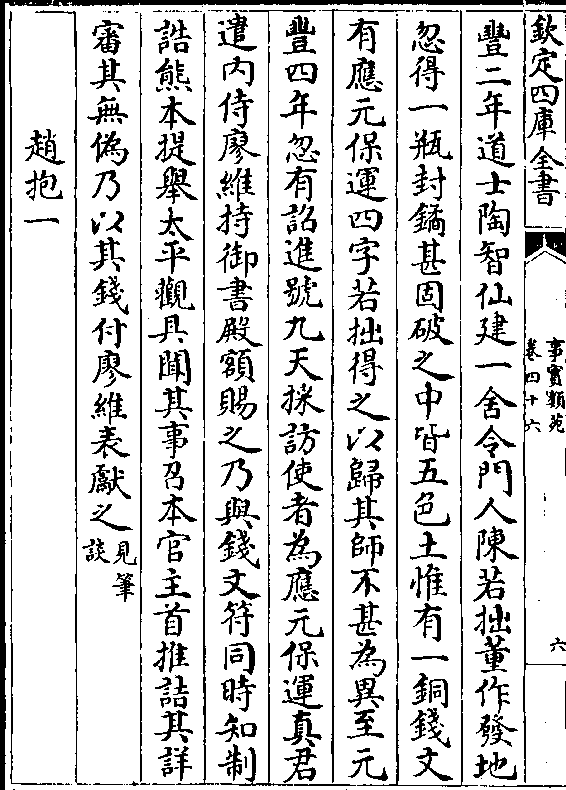 欽定四庫全書
事實類苑
卷四十六
六
豐二年道士陶智仙建一舍令門人陳若拙董作發地
忽得一瓶封鐍甚固破之中皆五色土惟有一銅錢文
有應元保運四字若拙得之以歸其師不甚為異至元
豐四年忽有詔進號九天採訪使者為應元保運真君
遣内侍廖維持御書殿額賜之乃與錢文符同時知制
誥熊本提舉太平觀具聞其事召本官主首推詰其詳
審其無偽乃以其錢付廖維表獻之見筆談
趙抱一